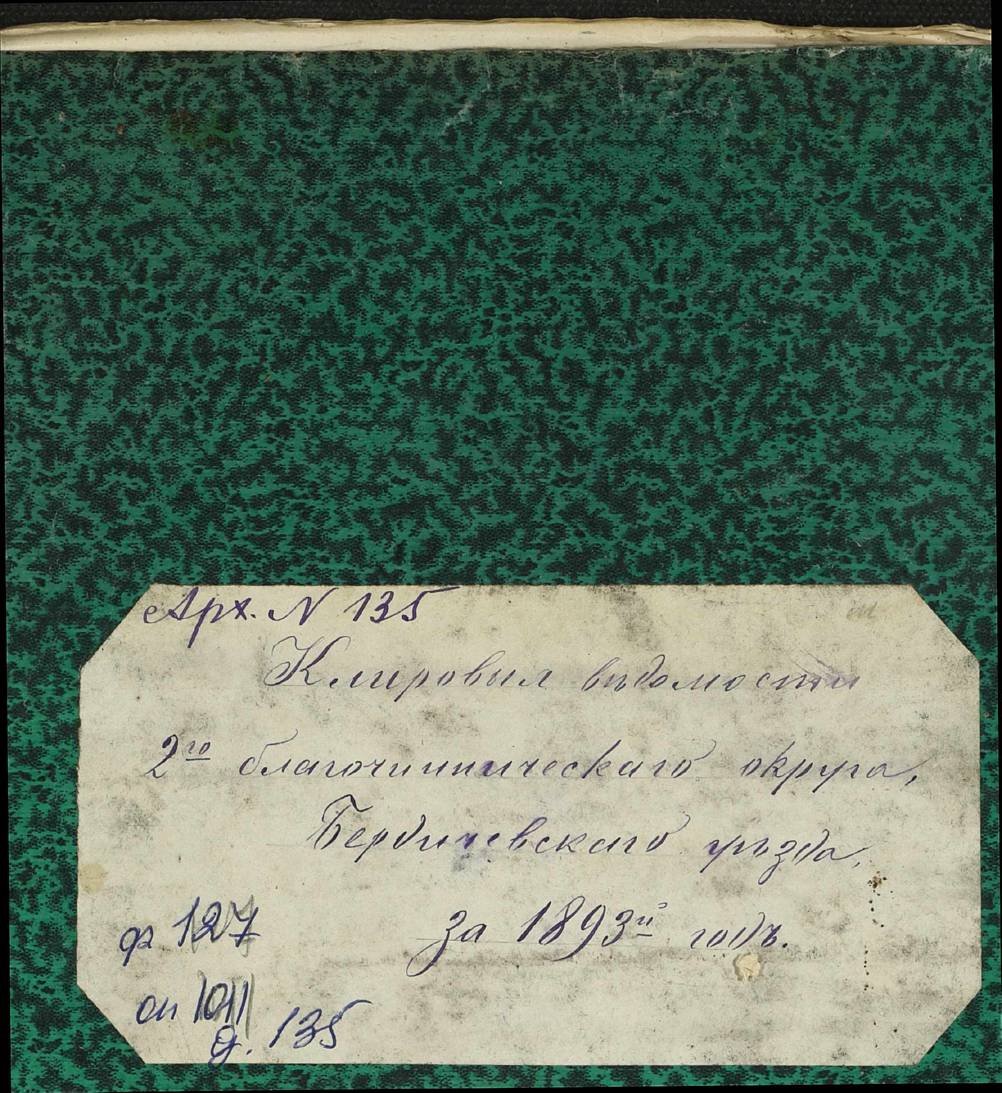 Арх. N 135
Клировыя вѣдомости
2го благочинническаго округа,
Бердичевскаго уѣзда,
за 1893й годъ.
ф 127
оп 1011
д. 135